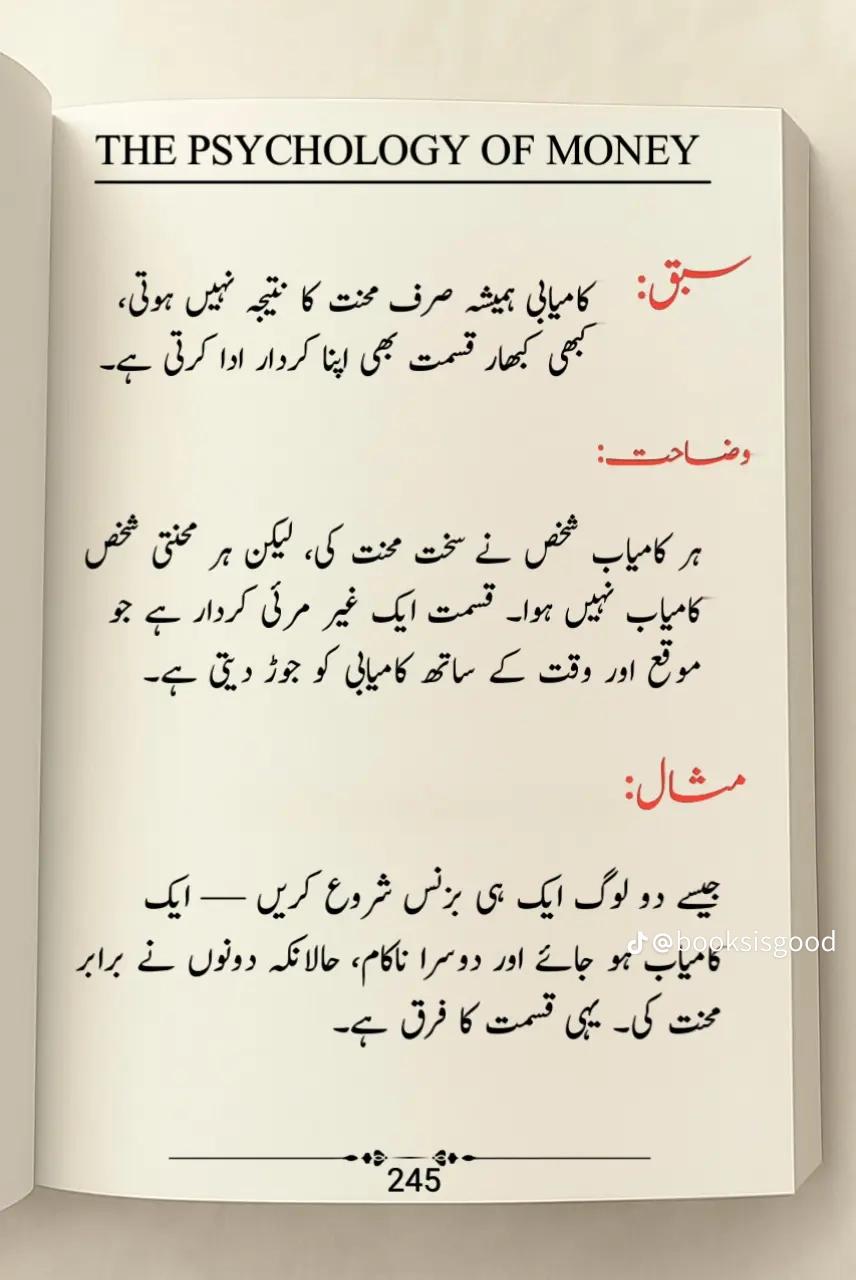 THE PSYCHOLOGY OF MONEY
سبق:
کامیابی ہمیشہ صرف محنت کا نتیجہ نہیں ہوتی،
کبھی کبھار قسمت بھی اپنا کردار ادا کرتی ہے۔
وضاحت:
ہر کامیاب شخص نے سخت محنت کی، لیکن ہر محنتی شخص
کامیاب نہیں ہوا۔ قسمت ایک غیر مرئی کردار ہے جو
موقع اور وقت کے ساتھ کامیابی کو جوڑ دیتی ہے۔
مثال:
جیسے دو لوگ ایک ہی بزنس شروع کریں — ایک
@booksisgood
کامیاب ہو جائے اور دوسرا ناکام، حالانکہ دونوں نے برابر
محنت کی۔ یہی قسمت کا فرق ہے۔
245